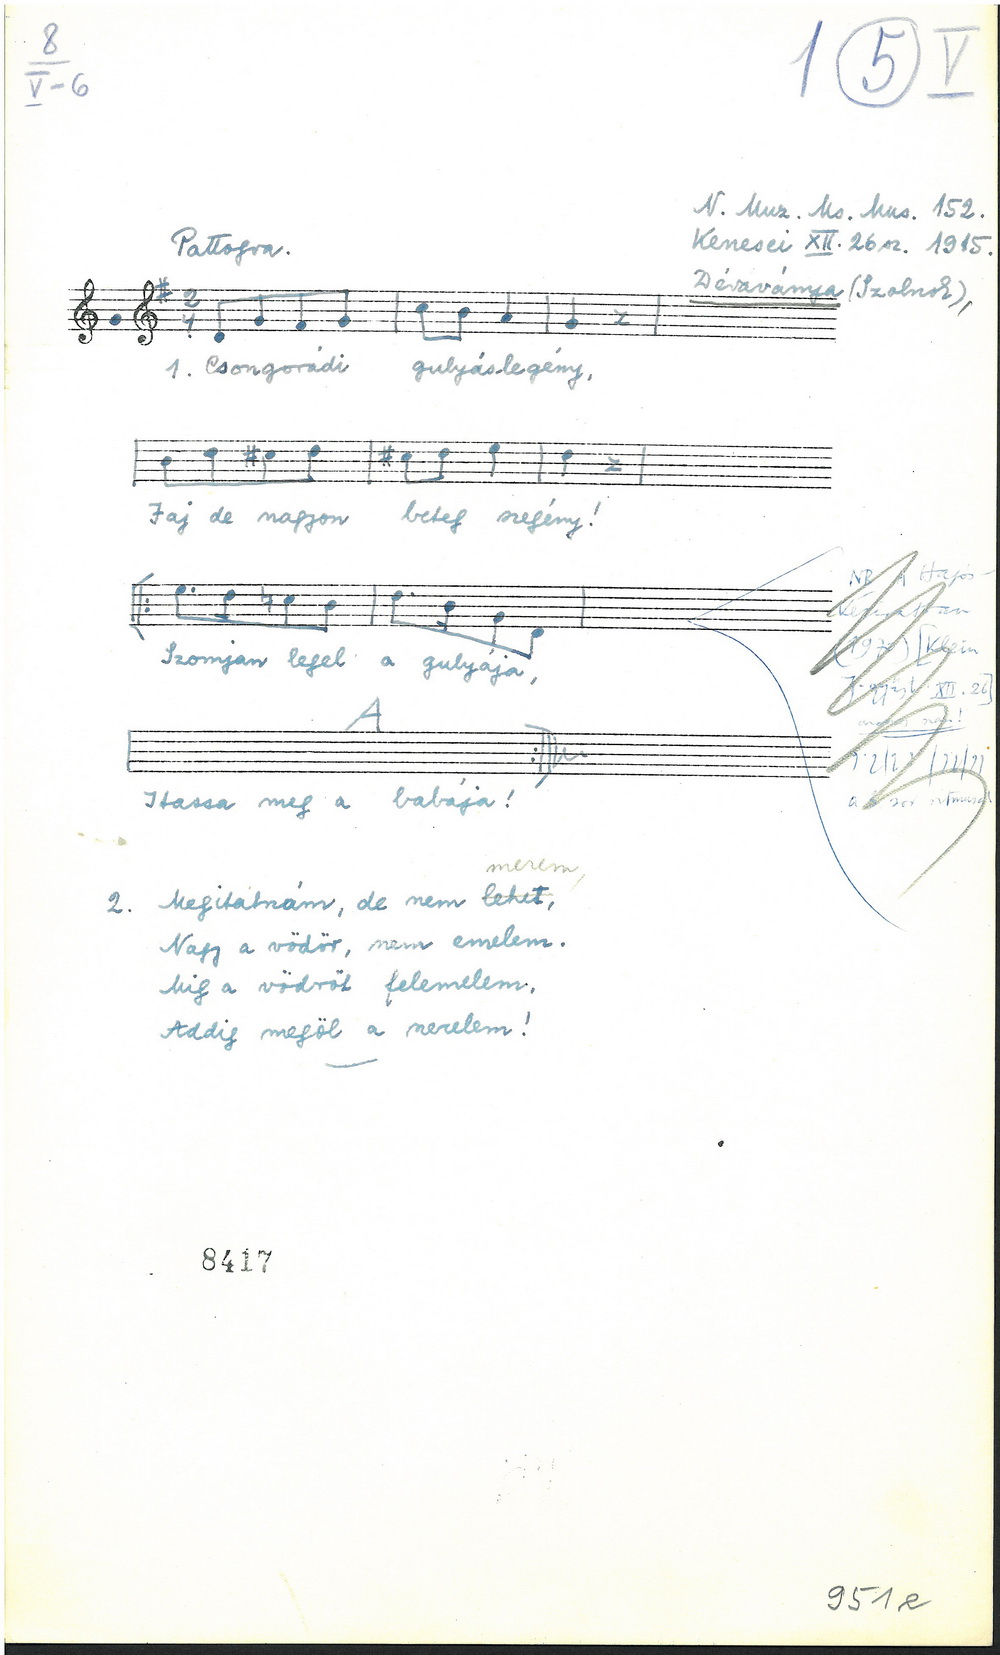 8
V-6
1 5 V
N. Muz. Ms. Mus. 152.
Kenesei XII. 26 sz. 1915.
Dévaványa (Szolnok),
Pattogva.
2
4
1. Csongorádi gulyáslegény,
Jaj de nagyon beteg szegény!
Szomjan legel a gulyája,
A
Itassa meg a babája!
NB A Hajós-
[Klein
XII. 26]
merem,
2. Megitatnám, de nem lehet,
Nagy a vödör, nem emelem.
Mig a vödröt felemelem,
Addig megöl a szerelem!
8417
951